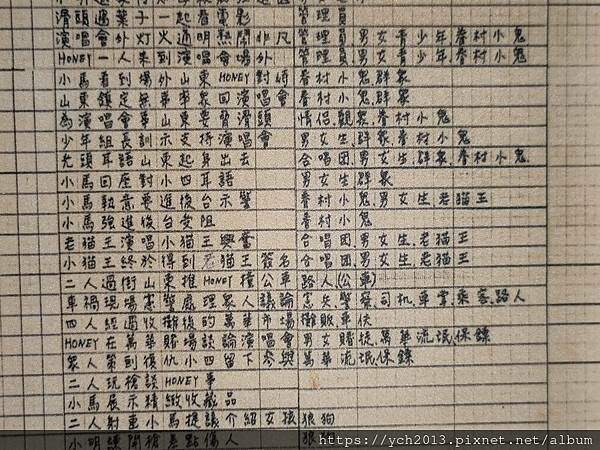 滑頭過葉子一起看電影 管理員
演唱會外灯火通明熱鬧非凡 管理員,男女青少年眷村小鬼
HONEY一人來到演唱會場外 管理員,男女青少年眷村小鬼
小馬看到場外山東HONEY對峙 眷村小鬼,群衆
山東鎮定無事率衆回演唱會 眷村小鬼,群衆
為演唱會事山東要脅滑頭 情侶,觀衆,眷村小鬼
少年組長訓示支持演唱會 男女生,群衆,眷村小鬼
光頭耳語山東起身出去 合唱团,男女生,群衆,眷村小鬼
小馬回座對小四耳語 男女生,群衆
小馬執意要進後台示警 眷村小鬼,男女生,老猫王
小馬強進後台受阻 眷村小鬼
老猫王演唱小猫王興奮 合唱团,男女生,老猫王
小猫王終於得到老猫王簽名 合唱团,男女生,老猫王
二人過街山東推HONEY撞公車 路人(公車)
車禍現場憲警處理衆人議論 憲兵,警察,司机,車掌,乘客,路人
四人經過收攤後的萬華市場 攤販,車伕
HONEY在萬華賭場談論演唱會 男女賭徒,萬華流氓,保鏢
衆人策劃復仇小四留下參與 萬華流氓,保鏢
二人玩槍談HONEY事
小馬展示精緻收藏品
二人對車小馬提議介紹女孩 狼狗
小明練開槍差點傷人 狼狗
https://ych2013.pixnet.net/album